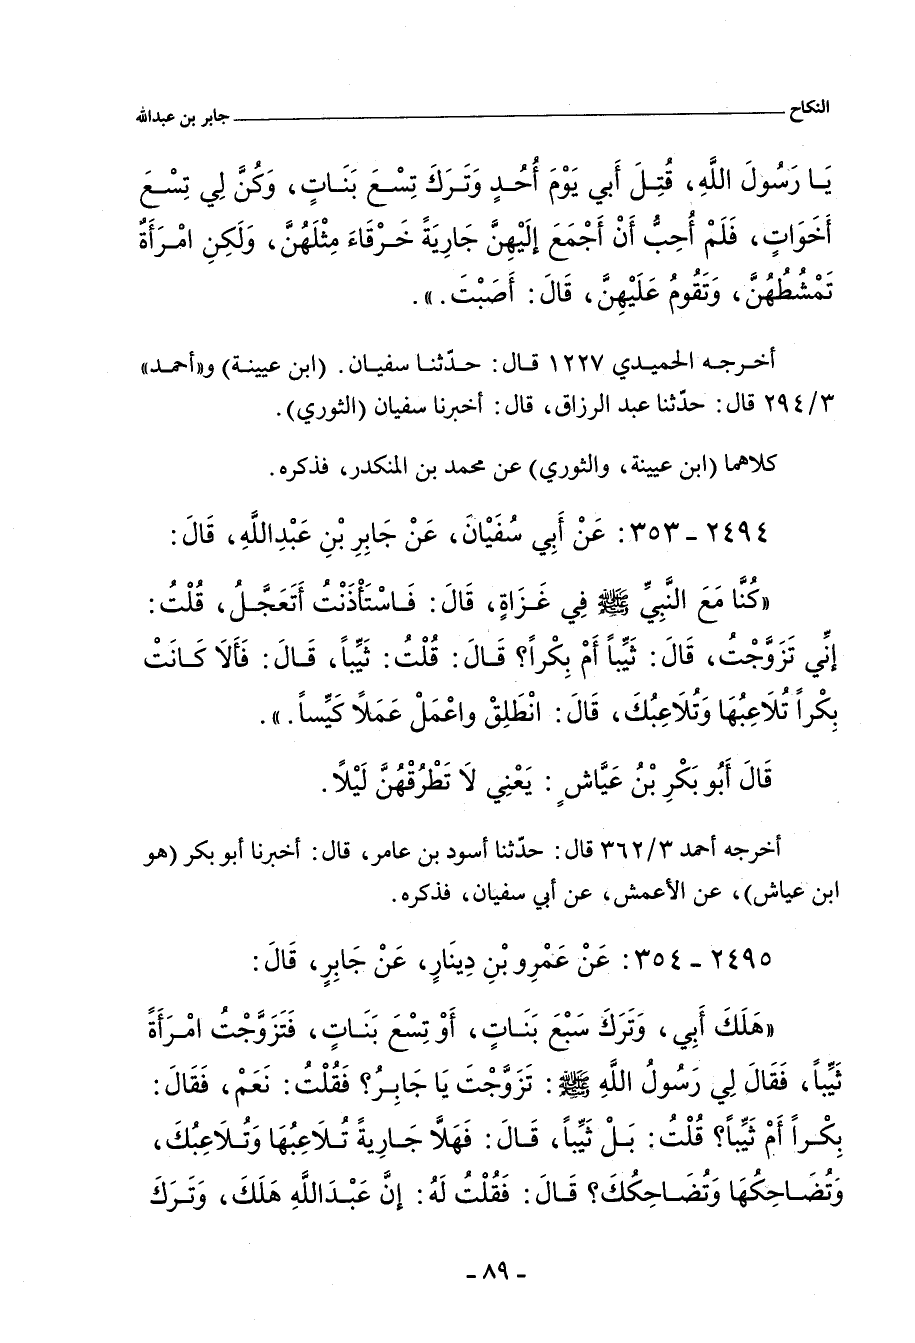 النكاح ـــــــــــــــــ جابر بن عبدالله
يَا رَسُولَ اللَّهِ، قُتِلَ أَبي يَوْمَ أُحُدٍ وَتَرَكَ تِسْعَ بَنَاتٍ، وَكُنَّ لِي تِسْعَ
أَخَوَاتٍ، فَلَمْ أُحِبُّ أَنْ أَجْمَعَ إلَيْهِنَّ جَارِيَةً خَرْقَاءَ مِثْلَهُنَّ، وَلَكِنِ امْرَأَةٌ
تَمْشُطُهُنَّ، وَتَقُومُ عَلَيْهِنَّ، قَالَ: أَصَبْتَ.».
أخرجه الحميدي ١٢٢٧ قال: حدّثنا سفيان. (ابن عيينة) و«أحمد»
٢٩٤/٣ قال: حدّثنا عبد الرزاق، قال: أخبرنا سفيان (الثوري).
كلاهما (ابن عيينة، والثوري) عن محمد بن المنكدر، فذكره.
٢٤٩٤ - ٣٥٣: عَنْ أَبِي سُفْيَانَ، عَنْ جَابِرِ بْنِ عَبْدِاللَّهِ، قَالَ:
«كُنَّا مَعَ النَّبِيِّ ﷺ فِي غَزَاةٍ، قَالَ: فَاسْتَأْذَنْتُ أَتَعَجَّلُ، قُلْتُ:
إنِّي تَزَوَّجْتُ، قَالَ: ثَيِّباً أَمْ بِكْراً؟ قَالَ: قُلْتُ: ثَيِّباً، قَالَ: فَأَلاَ كَانَتْ
بِكْراً تُلاَعِبُهَا وَتُلاَعِبُكَ، قَالَ: انْطَلِقْ واعْمَلْ عَمَلاً كَيِّساً.».
قَالَ أَبُو بَكْرِ بْنُ عَيَّاشٍ: يَعْنِي لاَ تَطْرُقْهُنَّ لَيْلاً.
أخرجه أحمد ٣٦٢/٣ قال: حدّثنا أسود بن عامر، قال: أخبرنا أبو بكر (هو
ابن عياش)، عن الأعمش، عن أبي سفيان، فذكره.
٢٤٩٥ - ٣٥٤: عَنْ عَمْرِو بْنِ دِينَارٍ، عَنْ جَابِرٍ، قَالَ:
«هَلَكَ أَبي، وَتَرَكَ سَبْعَ بَنَاتٍ، أَوْ تِسْعَ بَنَاتٍ، فَتَزَوَّجْتُ امْرَأَةً
ثَيِّباً، فَقَالَ لِي رَسُولُ اللَّهِ ﷺ: تَزَوَّجْتَ يَا جَابِرُ؟ فَقُلْتُ: نَعَمْ، فَقَالَ:
بِكْراً أَمْ ثَيِّباً؟ قُلْتُ: بَلْ ثَيِّباً، قَالَ: فَهَلاَّ جَارِيَةً تُلاَعِبُهَا وَتُلاَعِبُكَ،
وَتُضَاحِكُهَا وَتُضَاحِكُكَ؟ قَالَ: فَقُلْتُ لَهُ: إنَّ عَبْدَاللَّهِ هَلَكَ، وَتَرَكَ
- ٨٩ -